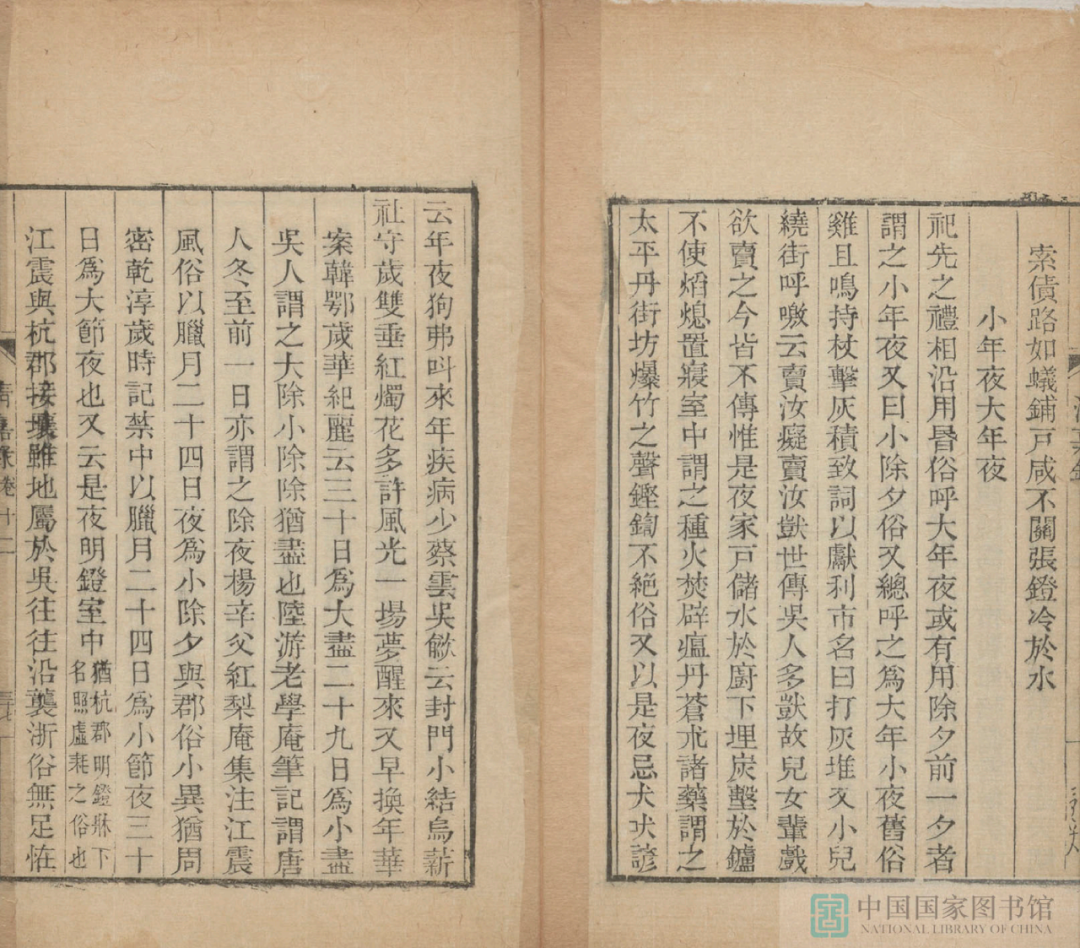 索債路如蟻鋪戸咸不關張鐙冷於水
小年夜大年夜
祀先之禮相沿用昬俗呼大年夜或有用除夕前一夕者
謂之小年夜又曰小除夕俗又總呼之爲大年小夜舊俗
雞且鳴持杖擊灰積致詞以獻利市名曰打灰堆又小兒
繞街呼噭云賣汝癡賣汝獃世傳吳人多獃故兒女輩戲
欲賣之今皆不傳惟是夜家戸儲水於廚下埋炭墼於鑪
不使熖熄置寢室中謂之種火焚辟瘟丹蒼朮諸藥謂之
太平丹街坊爆竹之聲鏗鍧不絶俗又以是夜忌犬吠諺
云年夜狗弗叫來年疾病少蔡雲吳歈云封門小結烏薪
社守歲雙垂紅燭花多許風光一場夢醒來又早換年華
案韓鄂歲華紀麗云三十日爲大盡二十九日爲小盡
吳人謂之大除小除除猶盡也陸游老學庵筆記謂唐
人冬至前一日亦謂之除夜楊辛父紅梨庵集注江震
風俗以臘月二十四日夜爲小除夕與郡俗小異猶周
密乾淳歲時記禁中以臘月二十四日爲小節夜三十
日爲大節夜也又云是夜明鐙室中猶杭郡明鐙牀下
名照虛耗之俗也
江震與杭郡接壤雖地屬於吳往往沿襲浙俗無足怪
中国国家图书馆
NATIONAL LIBRARY OF CHINA